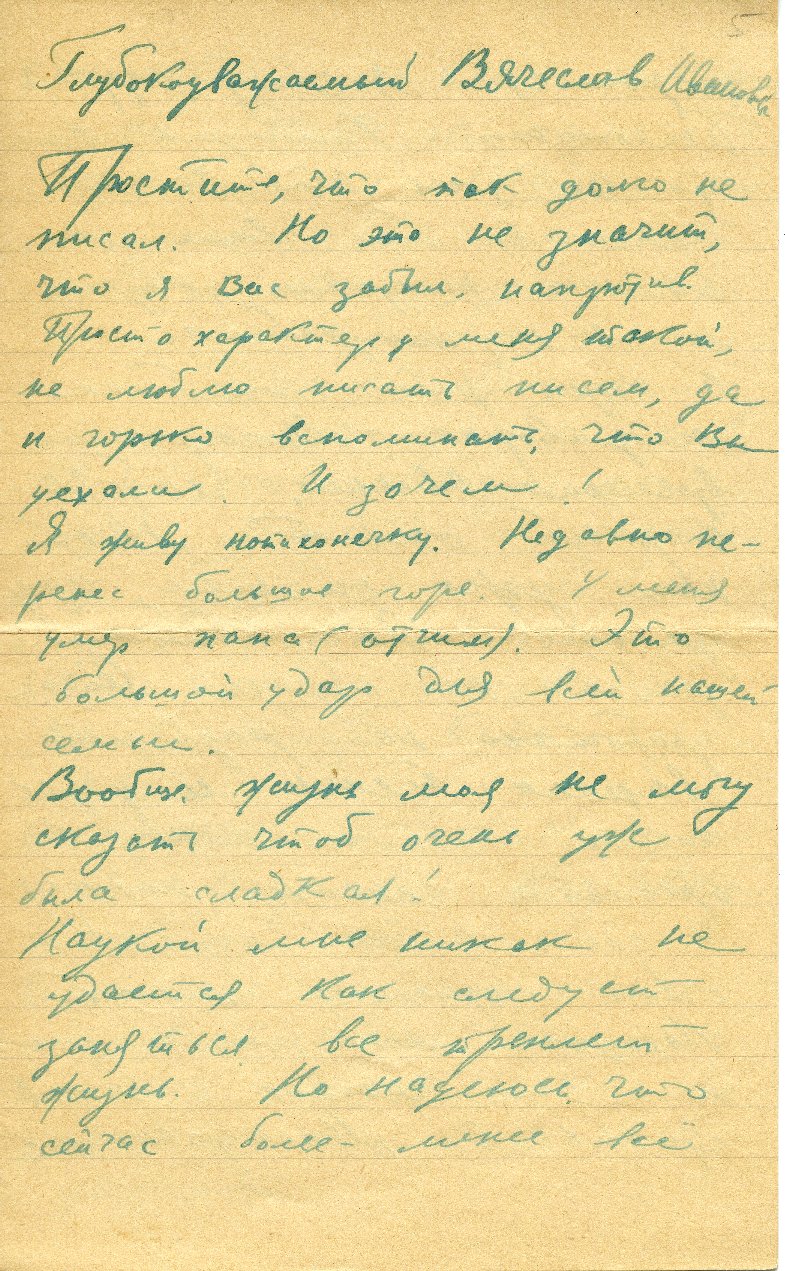 5
Глубокоуважаемый Вячеслав Иванович
Простите, что так долго не
писал. Но это не значит,
что я Вас забыл, напротив.
Просто характер у меня такой,
не люблю писать писем, да
и горько вспоминать, что Вы
уехали. И зачем!
Я живу потихонечку. Недавно пе-
ренес большое горе. У меня
умер папа (отчим). Это
большой удар для всей нашей
семьи.
Вообще жизнь моя не могу
сказать чтоб очень уж
была сладкая!
Наукой мне никак не
удается как следует
заняться все треплет
жизнь. Но надеюсь, что
сейчас более-менее всё